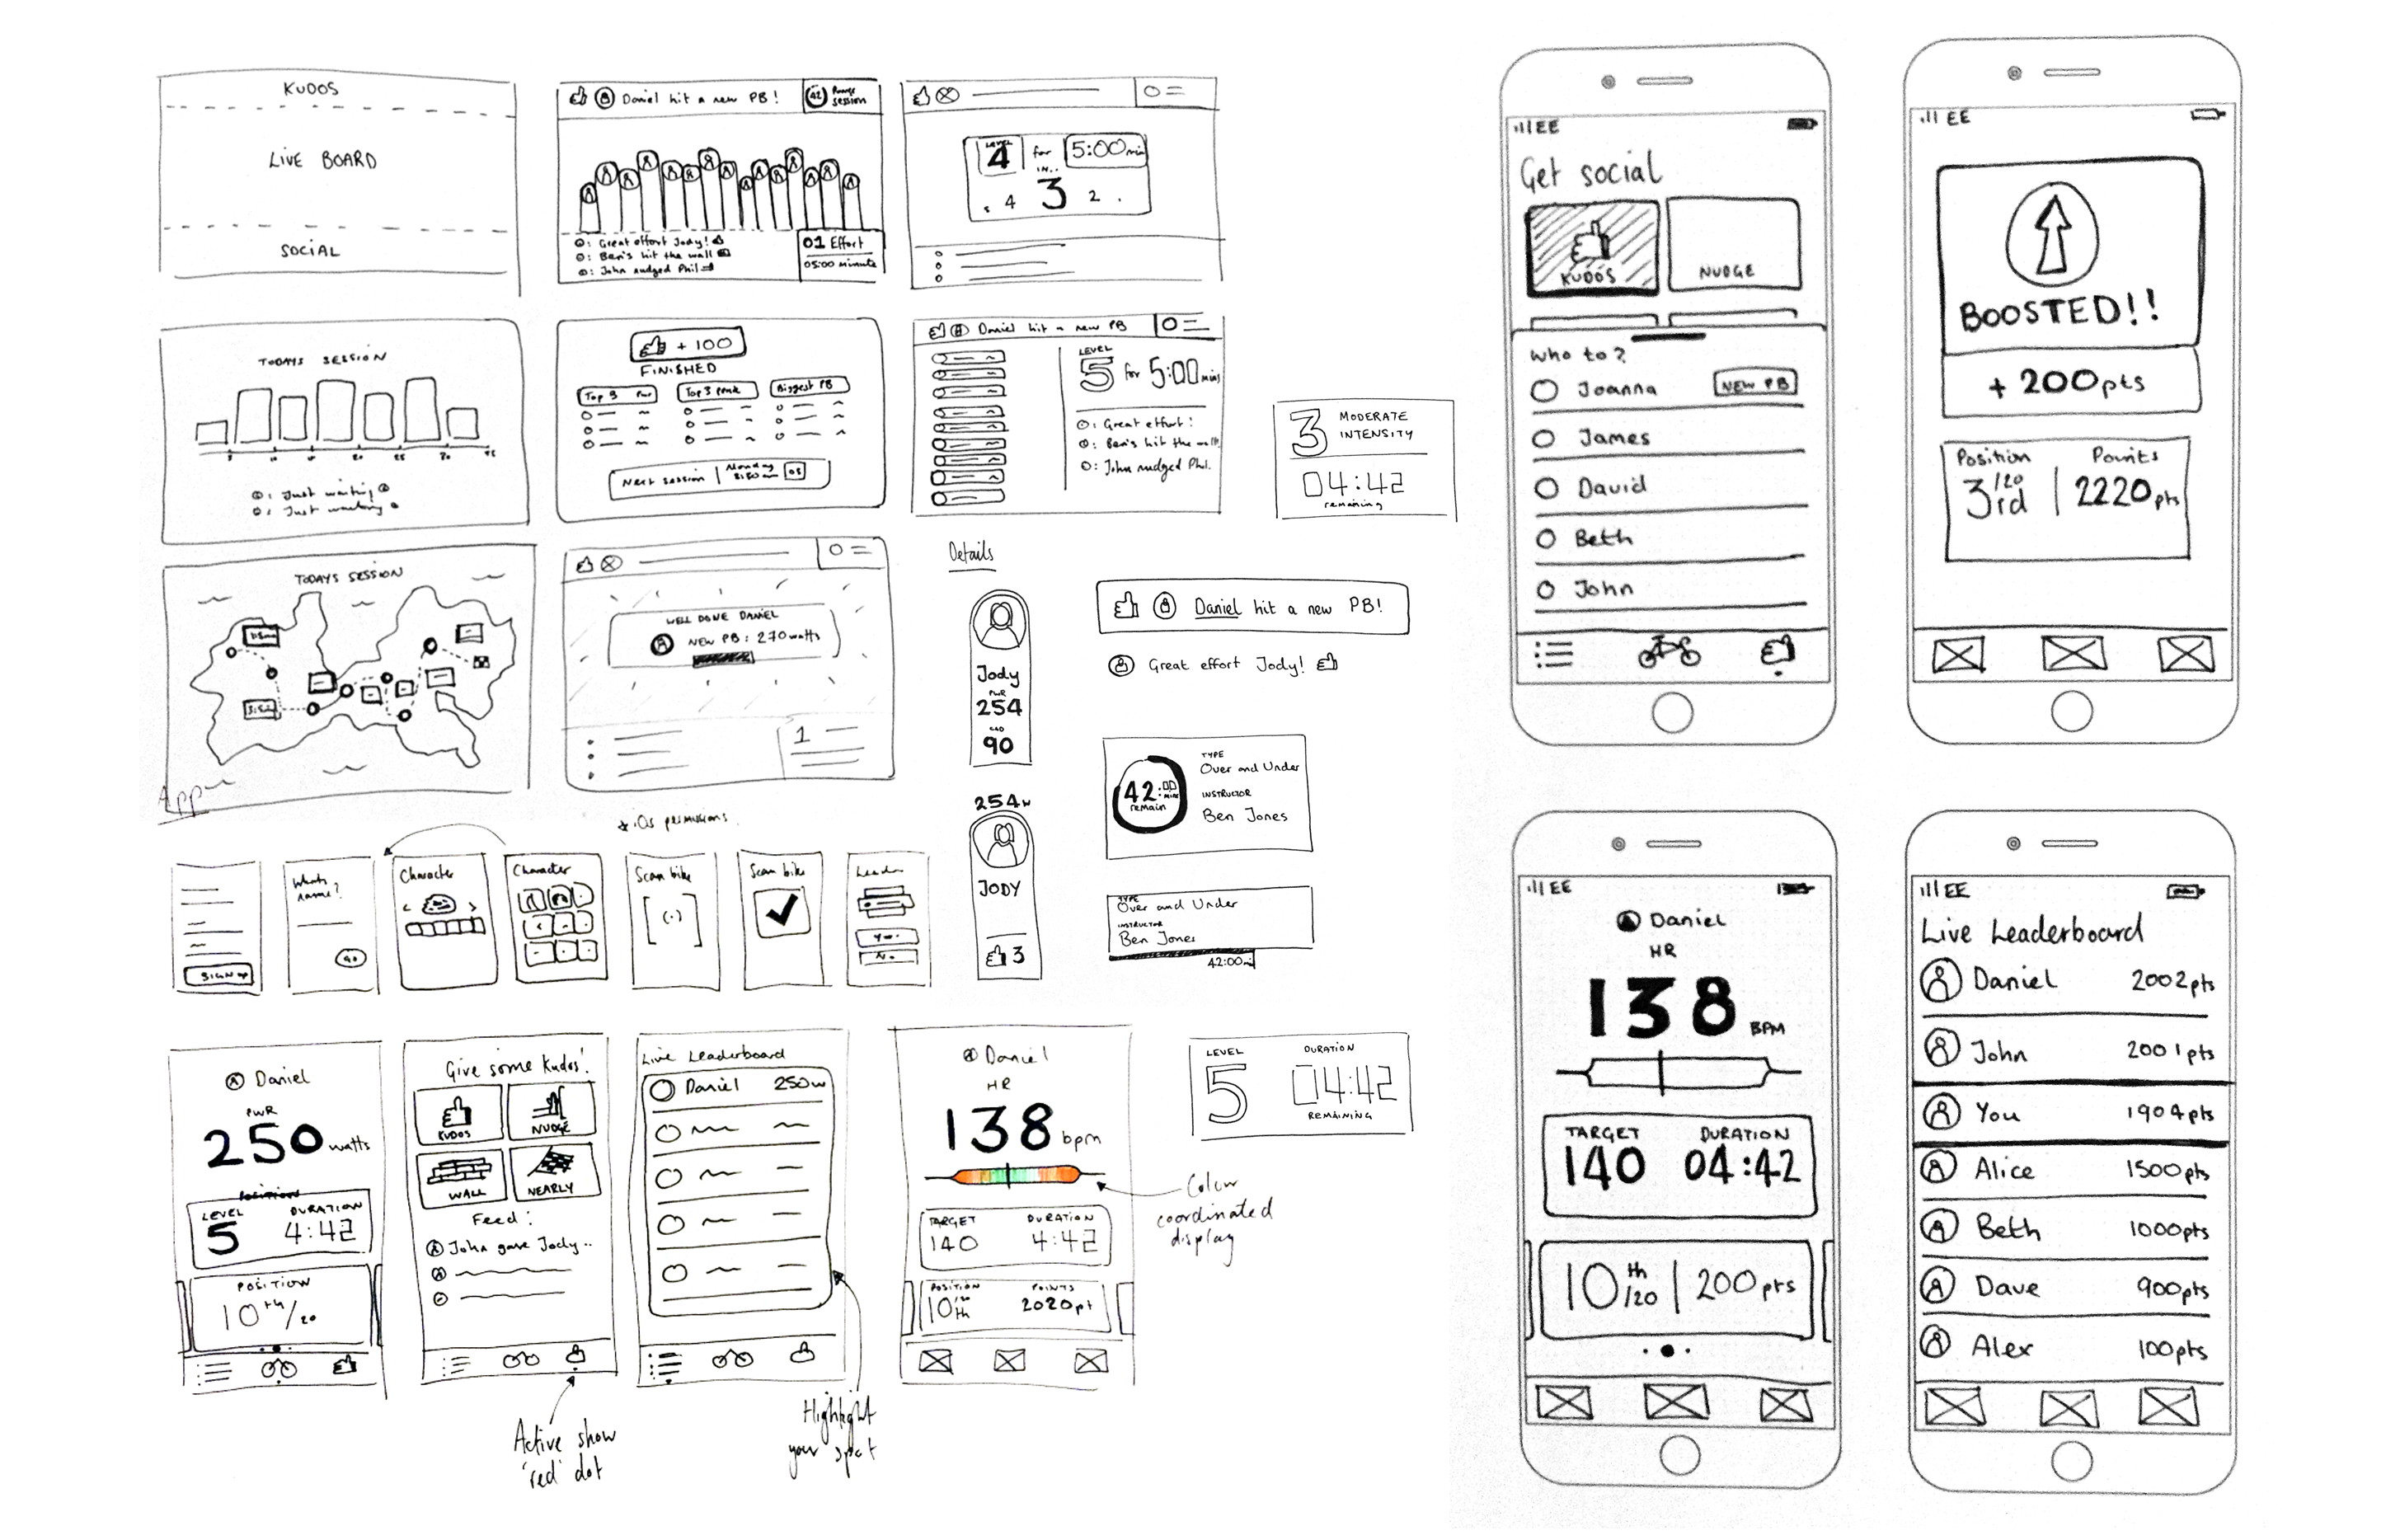 KUDOS
LIVE BOARD
SOCIAL
Daniel hit a new PB!
42
session
: Great effort Jody!
: Ben's hit the wall
: John nudged Phil
01 Effort
05:00 minute
LEVEL
4 for 5:00 min
IN..
4 3 2
TODAYS SESSION
: Just waiting
: Just waiting
+ 100
FINISHED
Top 3 Pwr
Top 3 peak
Biggest PB
Next session
Monday
Daniel hit a new PB
LEVEL
5 for 5:00 mins
: Great effort!
: Ben's hit the wall
: John nudged Phil.
3 MODERATE
INTENSITY
04:42
remaining
TODAYS SESSION
WELL DONE DANIEL
NEW PB: 270 watts
1
Details
Jody
PWR
254
CAD
90
Daniel hit a new PB!
Great effort Jody!
42:00
MINS
remain
TYPE
Over and Under
INSTRUCTOR
Ben Jones
254w
JODY
3
TYPE
Over and Under
INSTRUCTOR
Ben Jones
42:00
App
* iOs permissions
SIGN UP
Whats
name?
Go
Character
Character
Scan bike
Scan bike
Leader
Daniel
PWR
250 watts
Position
LEVEL DURATION
5 4:42
POSITION
10th/20
Give some Kudos!
KUDOS
NUDGE
WALL
NEARLY
Feed:
John gave Jody..
Active show
'red' dot
Live Leaderboard
Daniel 250w
Highlight
your spot
Daniel
HR
138 bpm
TARGET DURATION
140 4:42
POSITION POINTS
10th/20 2020pt
Colour
coordinated
display
LEVEL DURATION
5 04:42
REMAINING
EE
Get social
KUDOS
NUDGE
Who to?
Joanna NEW PB
James
David
Beth
John
EE
BOOSTED!!
+ 200pts
Position Points
3rd/20 2220pts
EE
Daniel
HR
138 BPM
TARGET DURATION
140 04:42
10th/20 200pts
EE
Live Leaderboard
Daniel 2002pts
John 2001pts
You 1904pts
Alice 1500pts
Beth 1000pts
Dave 900pts
Alex 100pts